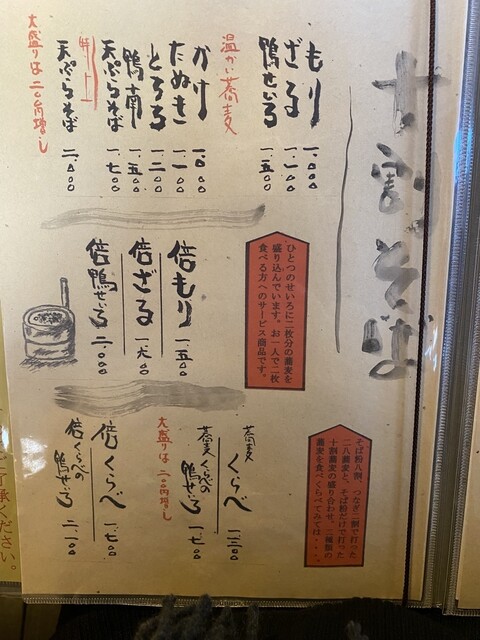 十割そば
もり 一、〇〇〇
ざる 一、一〇〇
鴨せいろ 一、五〇〇
温かい蕎麦
かけ 一、〇〇〇
たぬき 一、一〇〇
とろろ 一、二〇〇
鴨南 一、五〇〇
天ぷらそば 一、七〇〇
特上
天ぷらそば 二、〇〇〇
大盛りは二〇〇円増し
ひとつのせいろに二枚分の蕎麦を
盛り込んでいます。お一人で二枚
食べる方へのサービス商品です。
倍もり 一、五〇〇
倍ざる 一、六〇〇
倍鴨せいろ 二、〇〇〇
そば粉八割、つなぎ二割で打った
二八蕎麦と、そば粉だけで打った
十割蕎麦の盛り合わせ。二種類の
蕎麦を食べくらべてみては・・・。
蕎麦くらべ 一、三〇〇
蕎麦くらべの
鴨せいろ 一、七〇〇
大盛りは二〇〇円増し
倍くらべ 一、七〇〇
倍くらべの
鴨せいろ 二、一〇〇
ご了承ください。